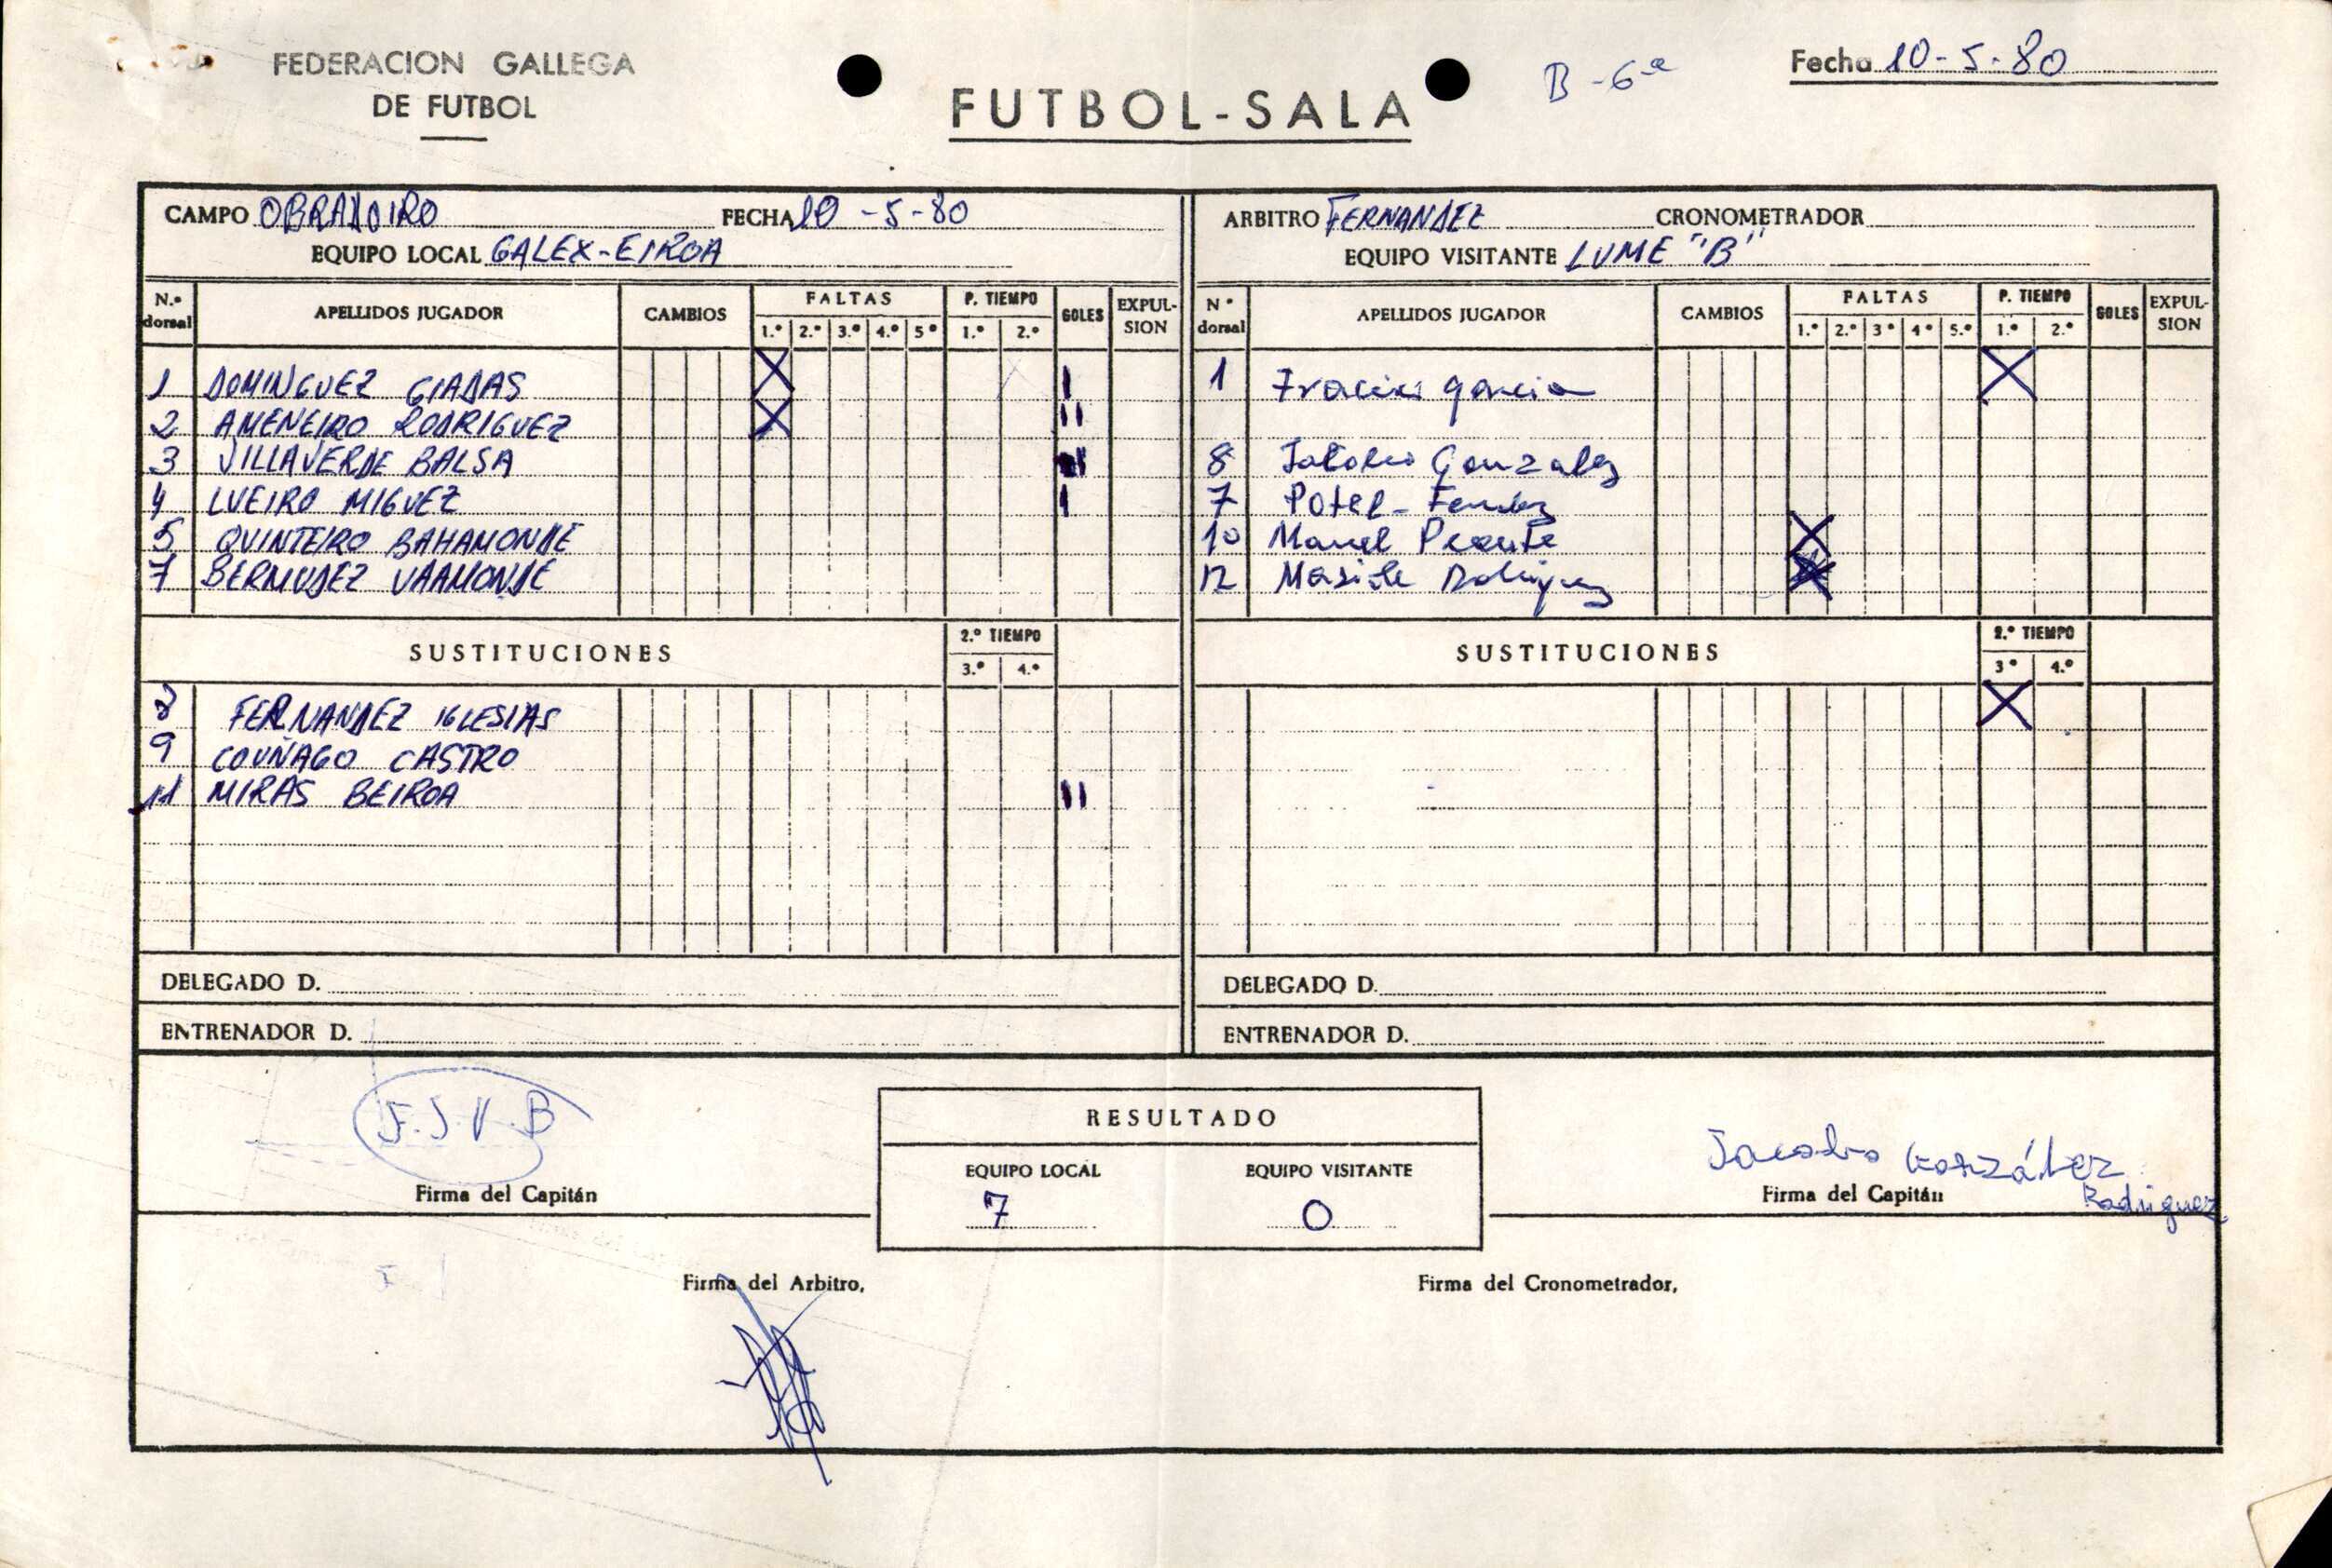 FEDERACION GALLEGA
DE FUTBOL
FUTBOL-SALA
B-6ª
Fecha 10-5-80
CAMPO OBRADOIRO FECHA 10-5-80
EQUIPO LOCAL GALEX-EIROA
N.º dorsal APELLIDOS JUGADOR CAMBIOS FALTAS 1.º 2.º 3.º 4.º 5º P. TIEMPO 1.º 2.º GOLES EXPUL-SION
1 DOMINGUEZ CIADAS X I
2 AMENEIRO RODRIGUEZ X II
3 VILLAVERDE BALSA
4 LUEIRO MIGUEZ I
5 QUINTEIRO BAHAMONDE
7 BERMUDEZ VAAMONDE
SUSTITUCIONES 2.º TIEMPO 3.º 4.º
8 FERNANDEZ IGLESIAS
9 COUÑAGO CASTRO
11 MIRAS BEIROA II
DELEGADO D.
ENTRENADOR D.
ARBITRO FERNANDEZ CRONOMETRADOR
EQUIPO VISITANTE LUME "B"
Nº dorsal APELLIDOS JUGADOR CAMBIOS FALTAS 1.º 2.º 3º 4º 5.º P. TIEMPO 1.º 2.º GOLES EXPUL-SION
1 García X
8 Gonzalez
7 Potel-
10 Manuel X
12 Rodriguez X
SUSTITUCIONES 2.º TIEMPO 3º 4.º
X
DELEGADO D.
ENTRENADOR D.
F.J.V.B
Firma del Capitán
RESULTADO
EQUIPO LOCAL EQUIPO VISITANTE
7 0
Jacobo González
Rodriguez
Firma del Capitán
Firma del Arbitro,
Firma del Cronometrador,